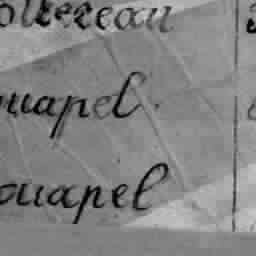 oltereau
ouapel.
ouapel